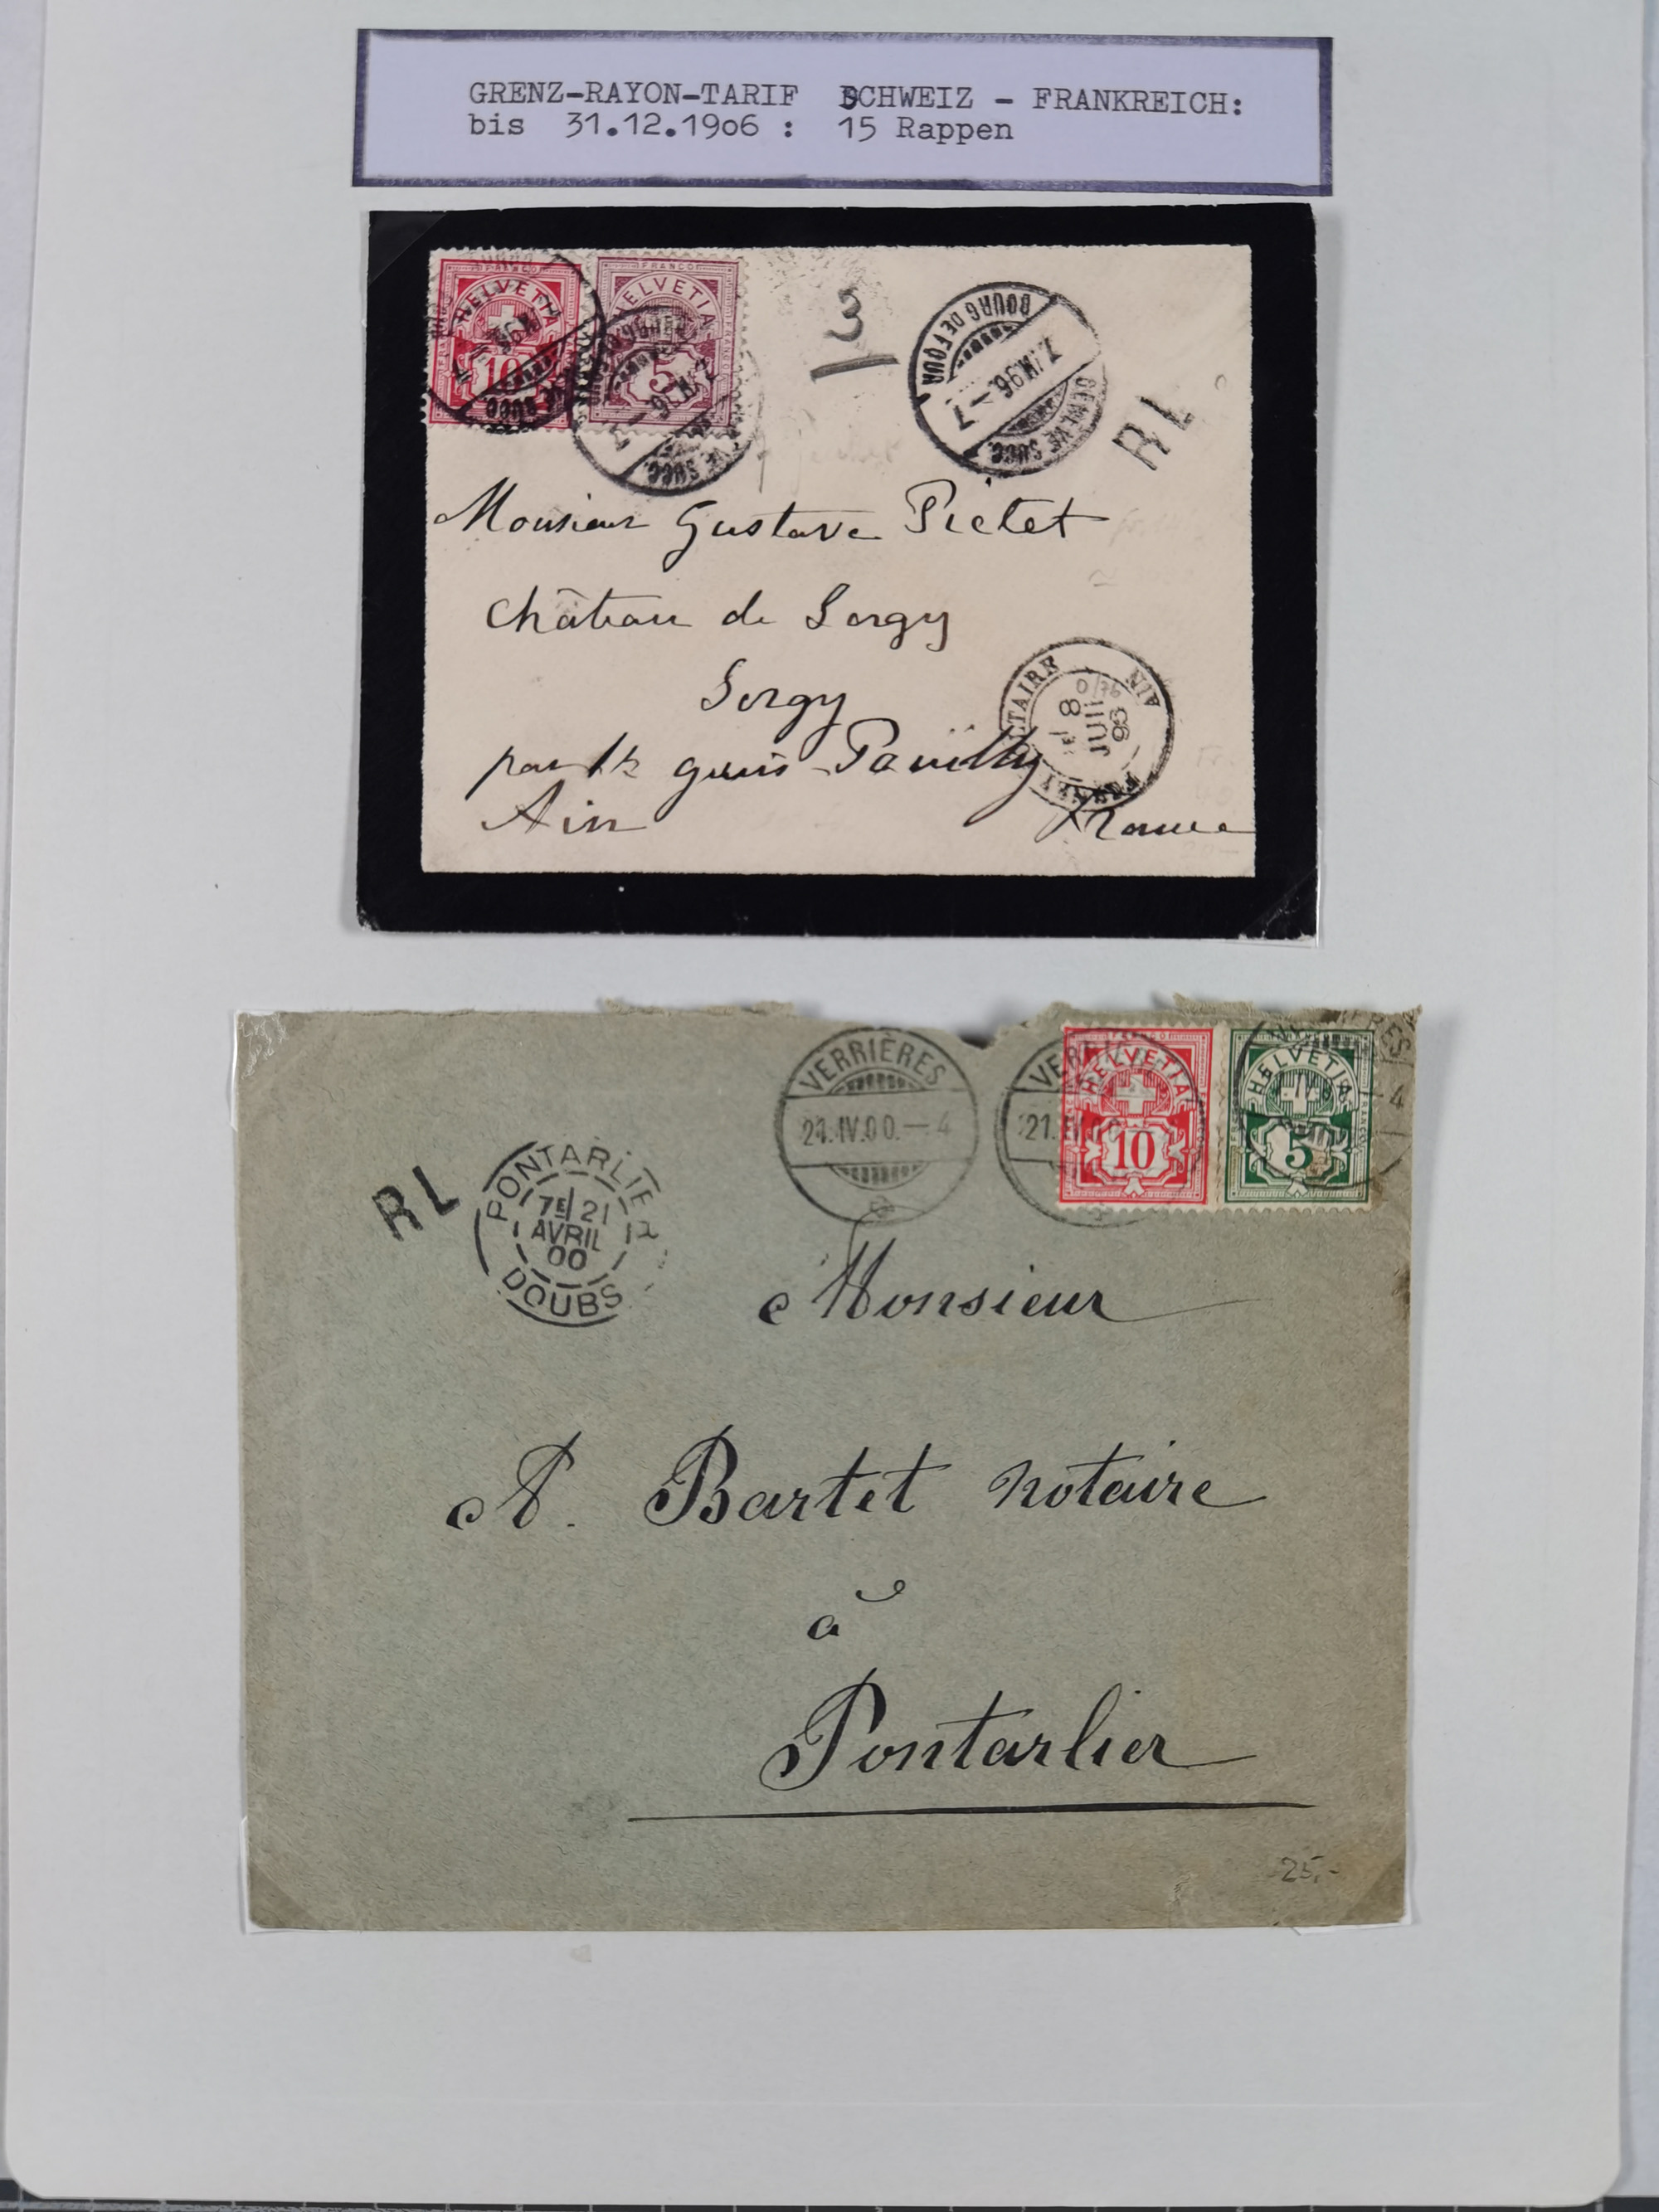 GRENZ-RAYON-TARIF SCHWEIZ - FRANKREICH:
bis 31.12.1906 : 15 Rappen
FRANCO FRANCO
HELVETIA HELVETIA
10 5
BOURG DE FOUR
7.VII.96.-7
GENÈVE SUCC.
RL
Monsieur Gustave Pictet
Château de Sergy
Sergy
par
Ain France
AIN
8
JUIL
RL
PONTARLIER
7E 21
AVRIL
00
DOUBS
VERRIÈRES
21.IV.00.-4
VERRI
21.IV.00
HELVETIA HELVETIA
10 5
Monsieur
A. Bartet notaire
à
Pontarlier
25,-